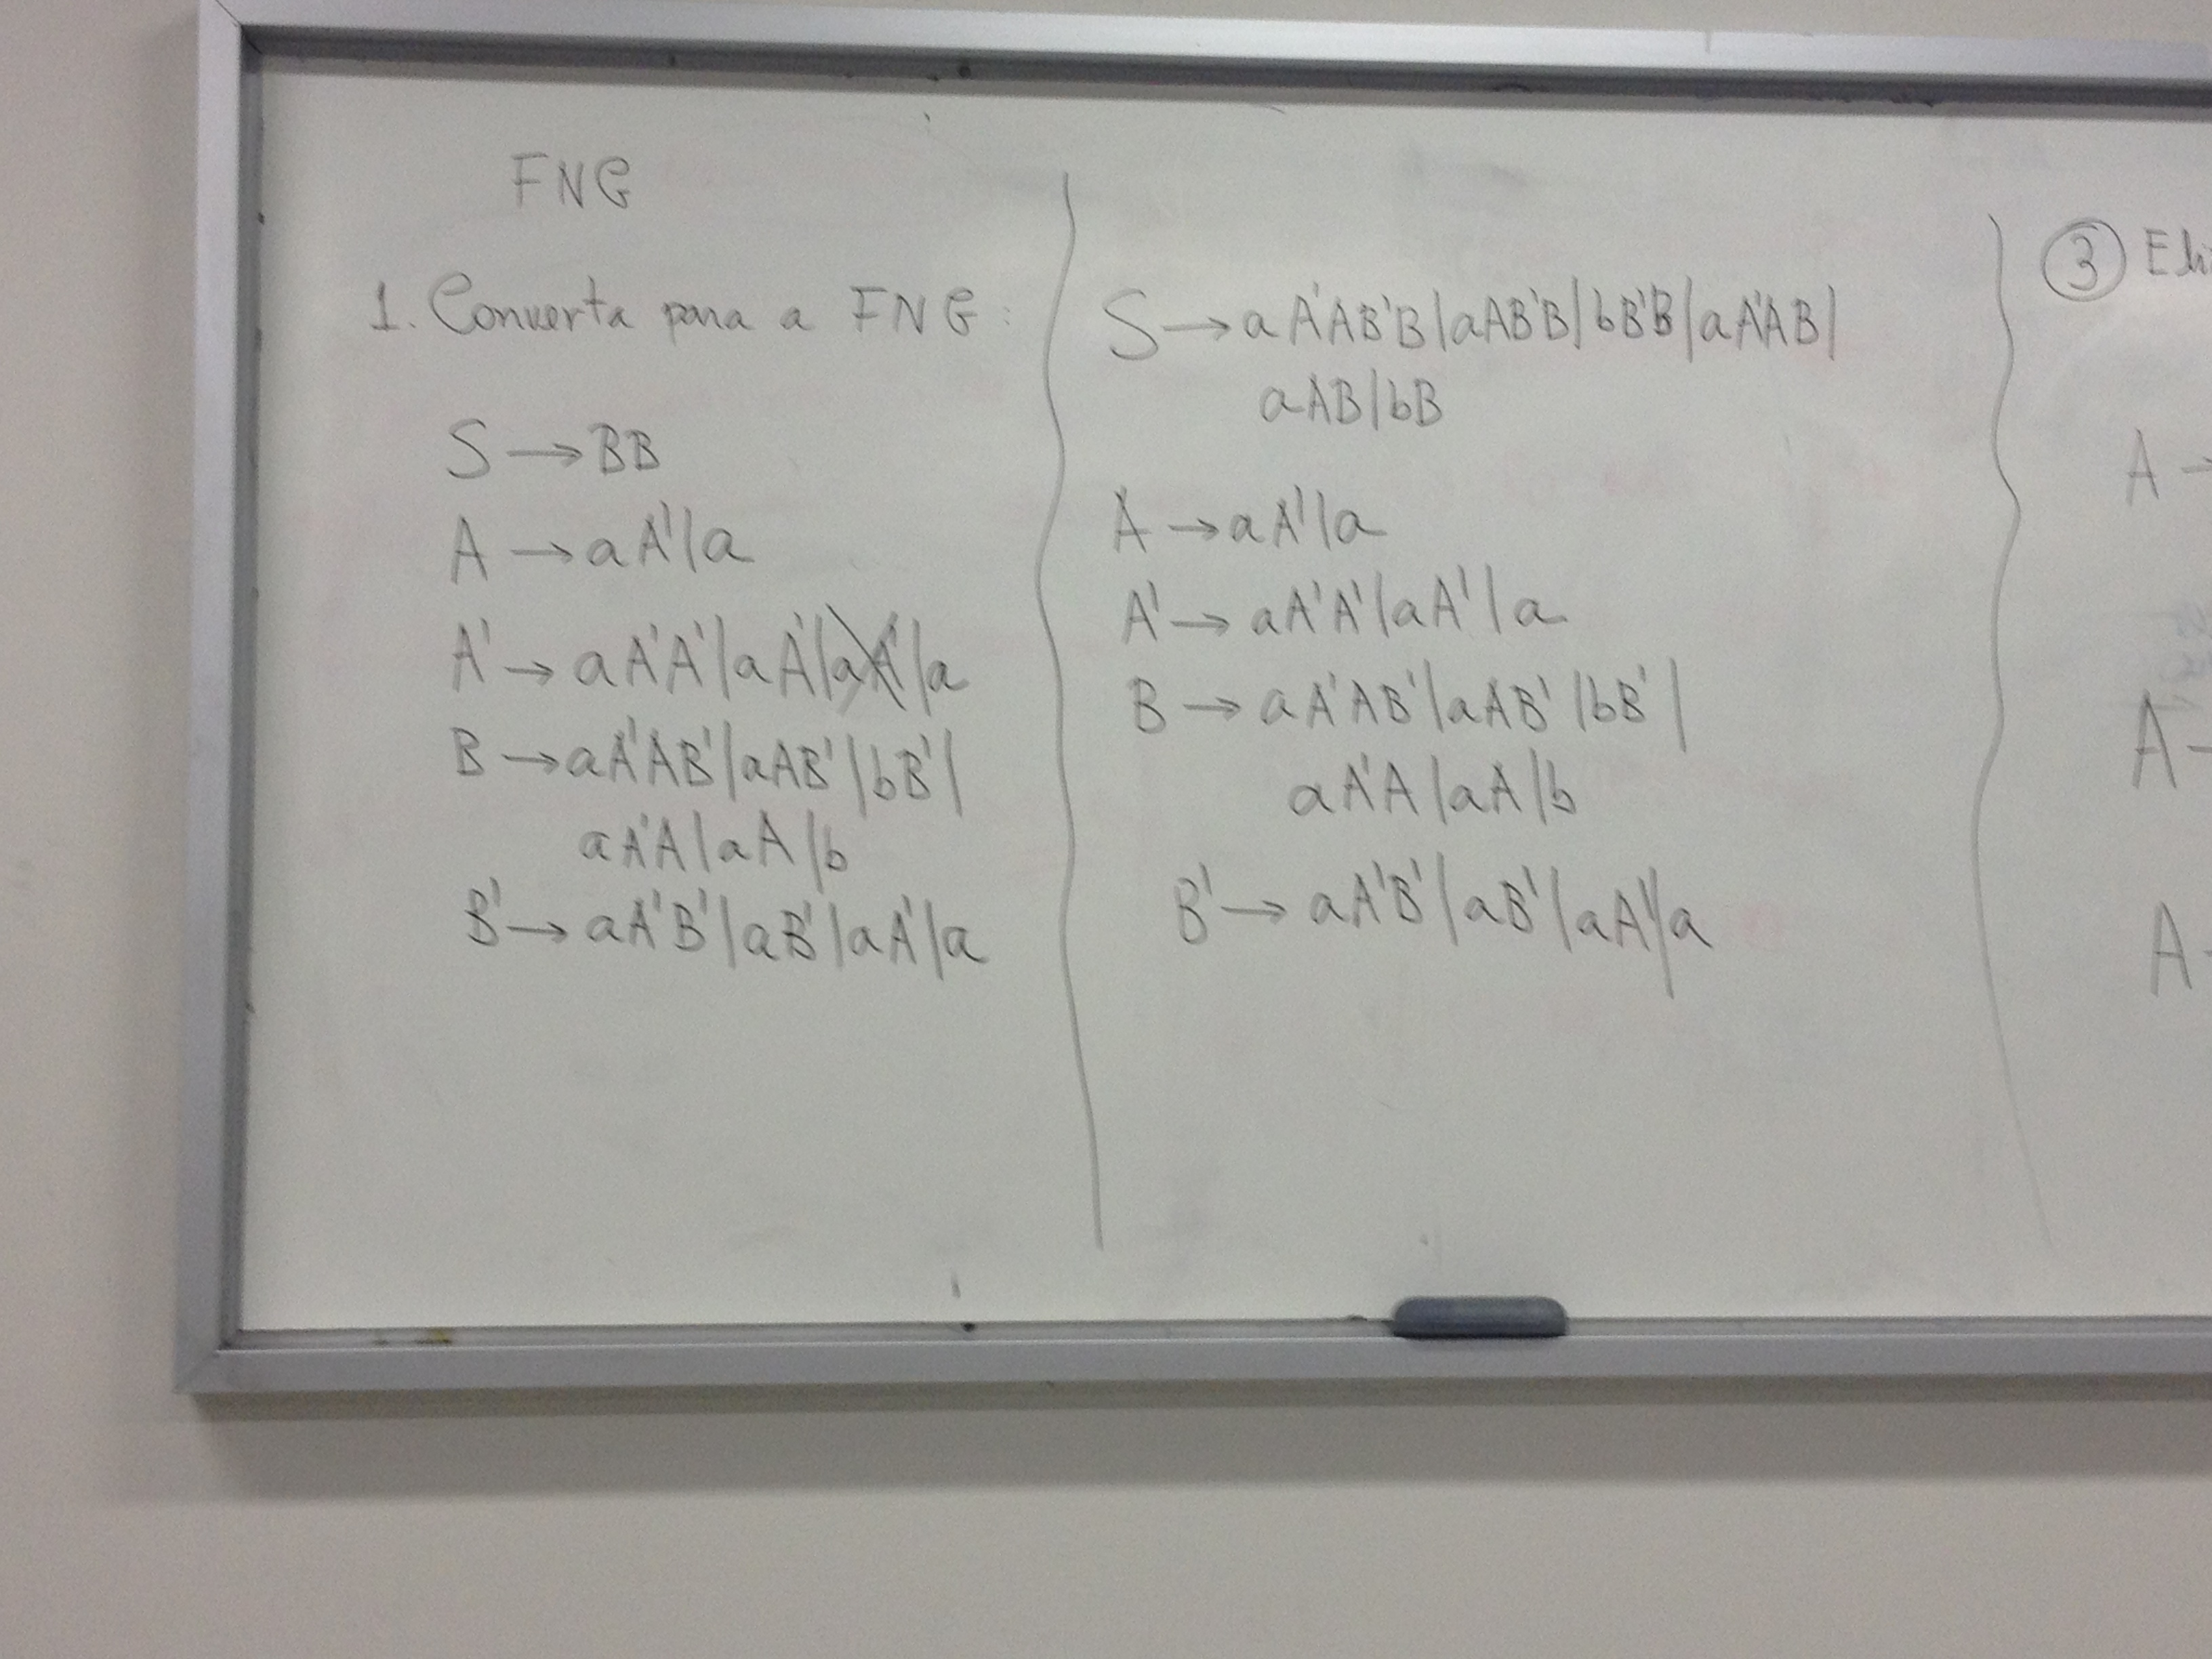 FNG
1. Converta para a FNG:
S → BB
A → aA'|a
A' → aA'A'|aA'|aA'|a
B → aA'AB'|aAB'|bB'|
aA'A|aA|b
B' → aA'B'|aB'|aA'|a
S → aA'AB'B|aAB'B|bB'B|aA'AB|
aAB|bB
A → aA'|a
A' → aA'A'|aA'|a
B → aA'AB'|aAB'|bB'|
aA'A|aA|b
B' → aA'B'|aB'|aA'|a
③
A →
A -
A -